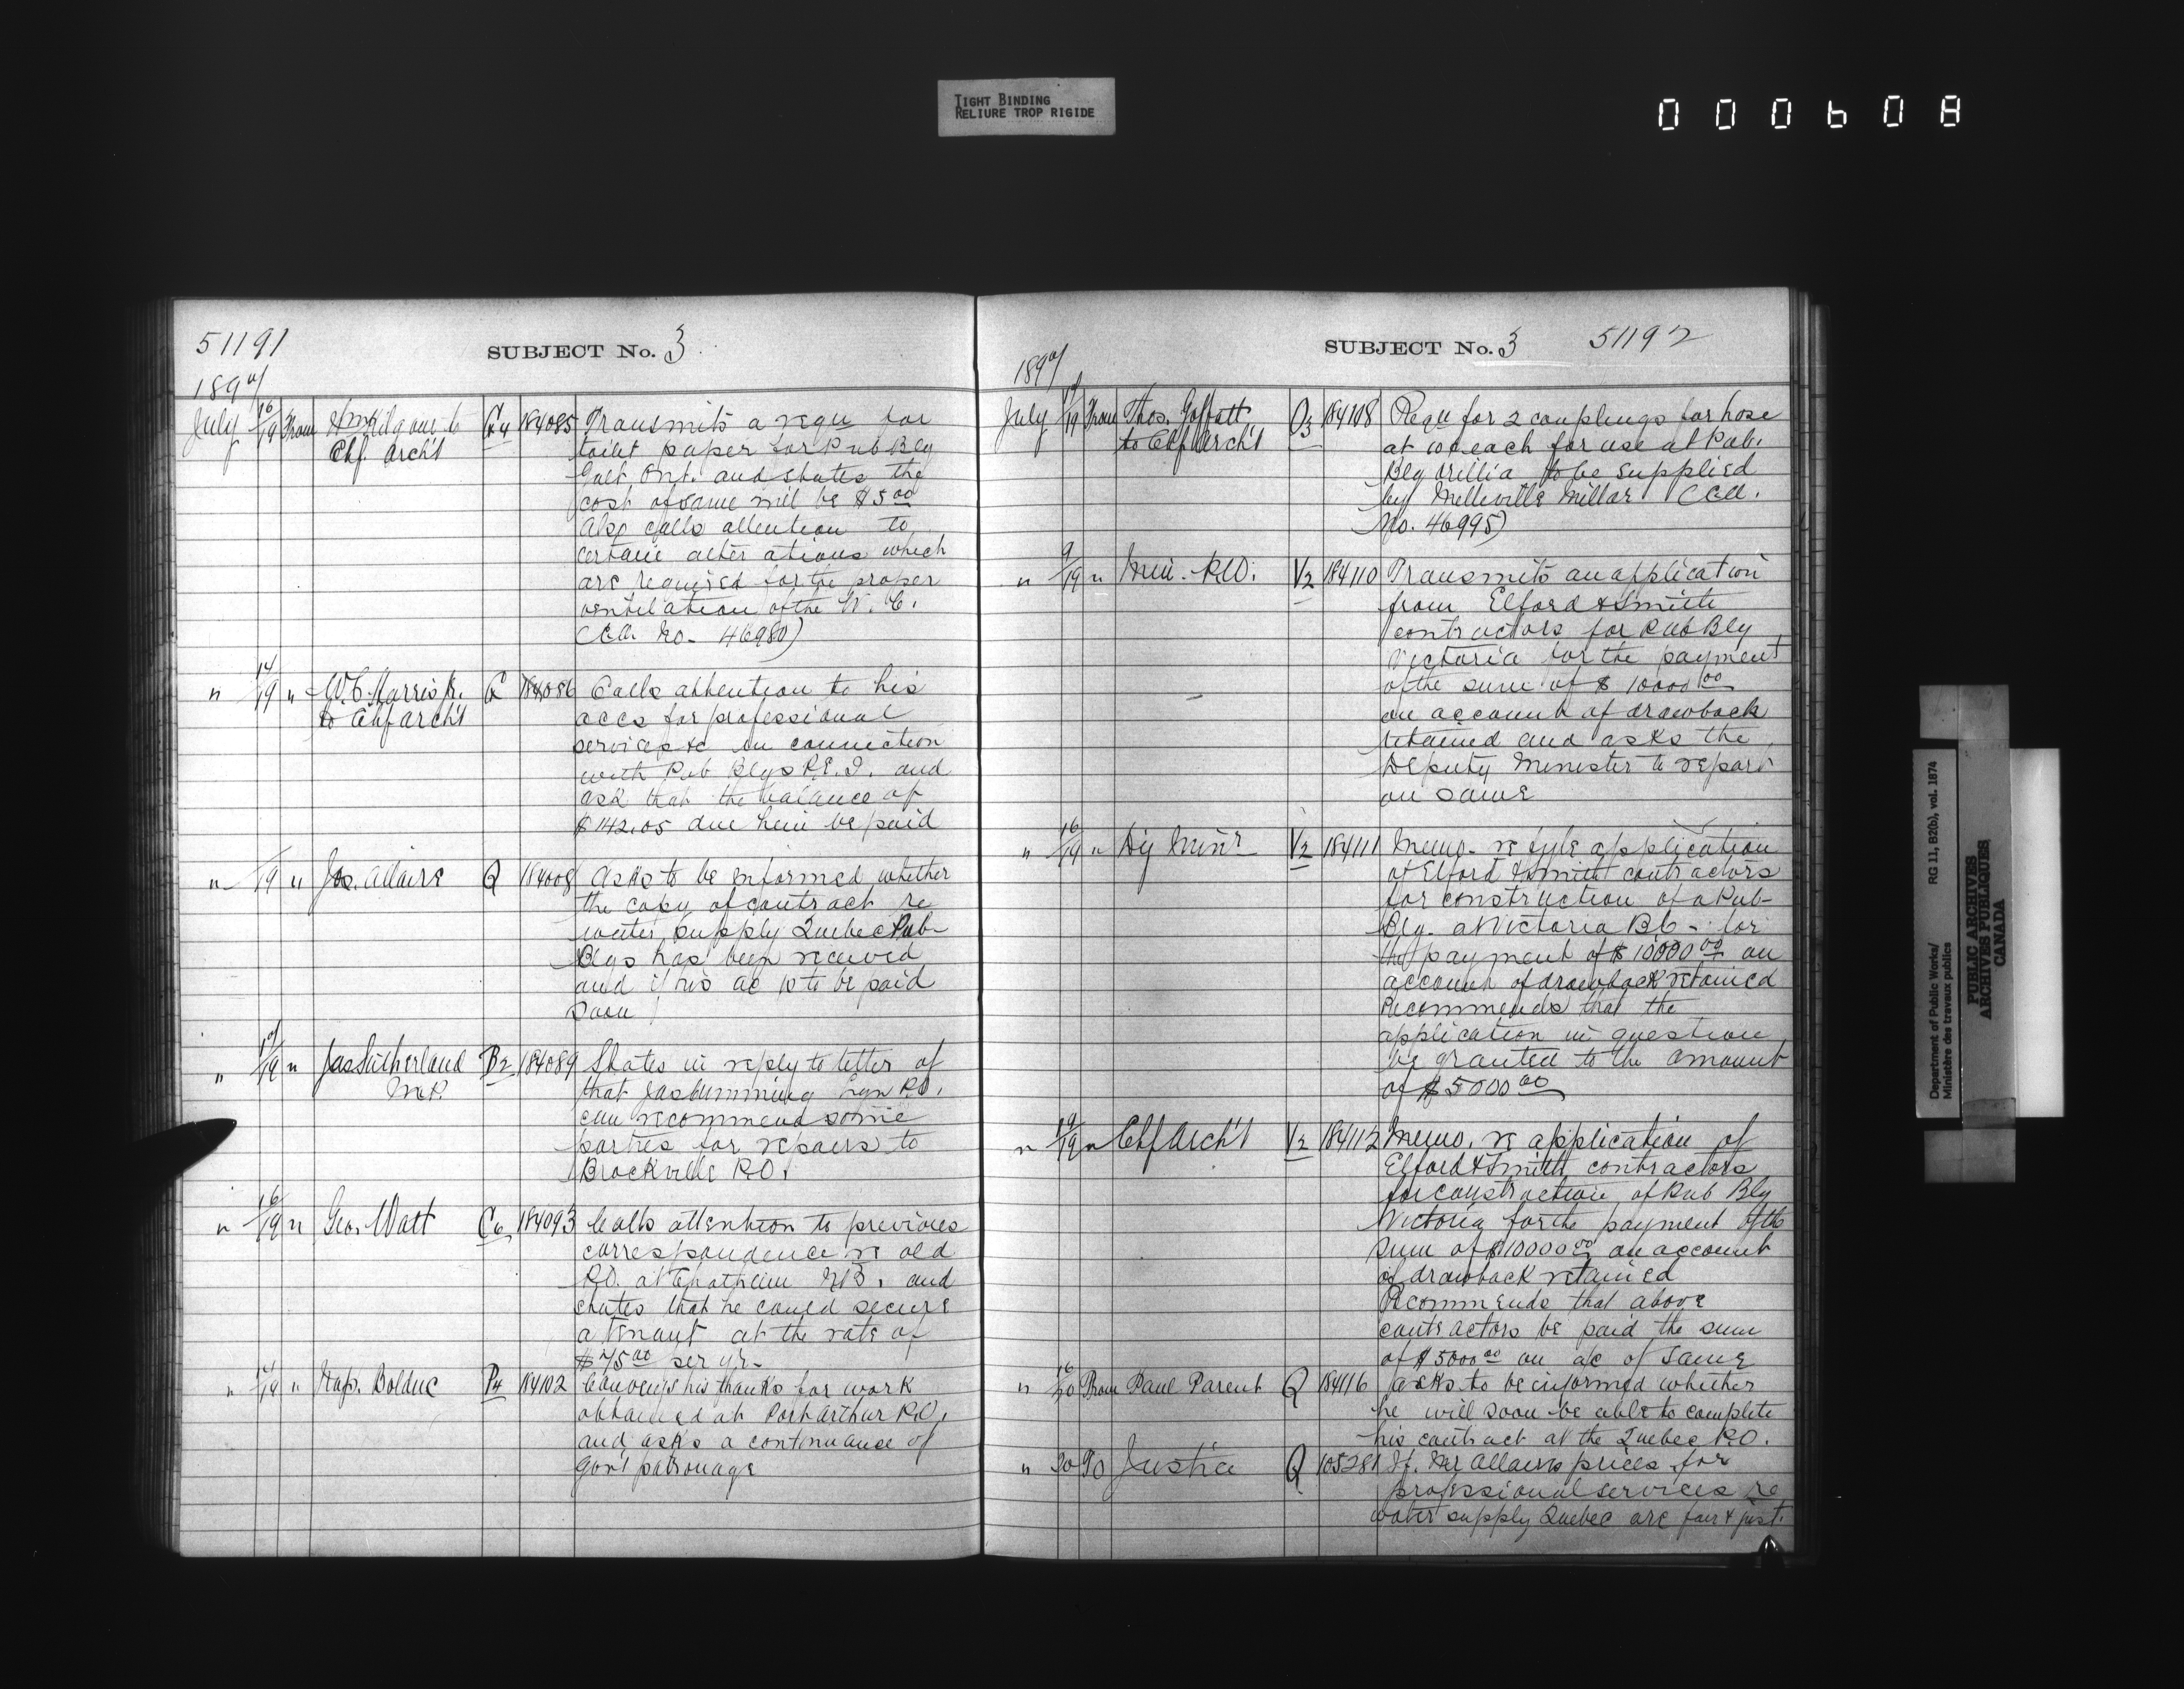 TIGHT BINDING
RELIURE TROP RIGIDE
000608
51191
SUBJECT No. 3
1897
July 16/19 From Kilgour to G4 184085 Transmits a requ for
Chf. Arch't toilet paper for Pub Blg
Galt, Ont. and states the
cost of same will be $5 00
Also calls attention to
certain alterations which
are required for the proper
ventilation of the W. C.
(CA. No. 46980)
" 14/19 " W.C. Harris Jr. C 184086 Calls attention to his
to Chf Arch't accs for professional
services &c in connection
with Pub Blgs P.E.I. and
ask that the balance of
$142.05 due him be paid
" /19 " Jos. Allaire Q 184008 Asks to be informed whether
the copy of contract re
water supply Quebec Pub-
Blgs has been received
and if his ac is to be paid
soon
" 17/19 " Jas Sutherland B2 184089 States in reply to letter of
M.P. that Jas Cumming Lyn P.O.
can recommend some
parties for repairs to
Brockville P.O.
" 16/19 " Geo. Watt C6 184093 Calls attention to previous
correspondence re old
P.O. at Chatham N.B. and
states that he could secure
a tenant at the rate of
$75 00 per yr-
" /19 " Nap. Bolduc P4 184102 Conveys his thanks for work
obtained at Port Arthur P.O.
and asks a continuance of
Gov't patronage
SUBJECT No. 3 51192
1897
July 17/19 From Thos. Goffatt O3 184108 Requ for 2 couplings for hose
to Chf Arch't at 60¢ each for use at Pub.
Blg Orillia to be supplied
by Melleville Millar (CA.
No. 46995)
" 9/19 " Min. P.W. V2 184110 Transmits an application
from Elford & Smith
contractors for Pub Blg
Victoria for the payment
of the sum of $10000 00
on account of drawback
retained and asks the
Deputy Minister to report
on same
" 16/19 " Dy Min'r V2 184111 Memo- re fyle application
of Elford & Smith contractors
for construction of a Pub-
Blg. at Victoria B.C - for
the payment of $10000 00 on
account of drawback retained
Recommends that the
application in question
be granted to the amount
of $5000 00
" 19/19 " Chf Arch't V2 184112 Memo. re application of
Elford & Smith contractors
for construction of Pub Blg
Victoria for the payment of the
sum of $10000 00 on account
of drawback retained
Recommends that above
contractors be paid the sum
of $5000 00 on a/c of same
" 16/20 From Paul Parent Q 184116 asks to be informed whether
he will soon be able to complete
his contract at the Quebec P.O.
" 20 To Justice Q 105281 If. Mr Allaires prices for
professional services re
water supply Quebec are fair & just.
Department of Public Works/
Ministère des travaux publics
RG 11, B2(b), vol. 1874
PUBLIC ARCHIVES
ARCHIVES PUBLIQUES
CANADA